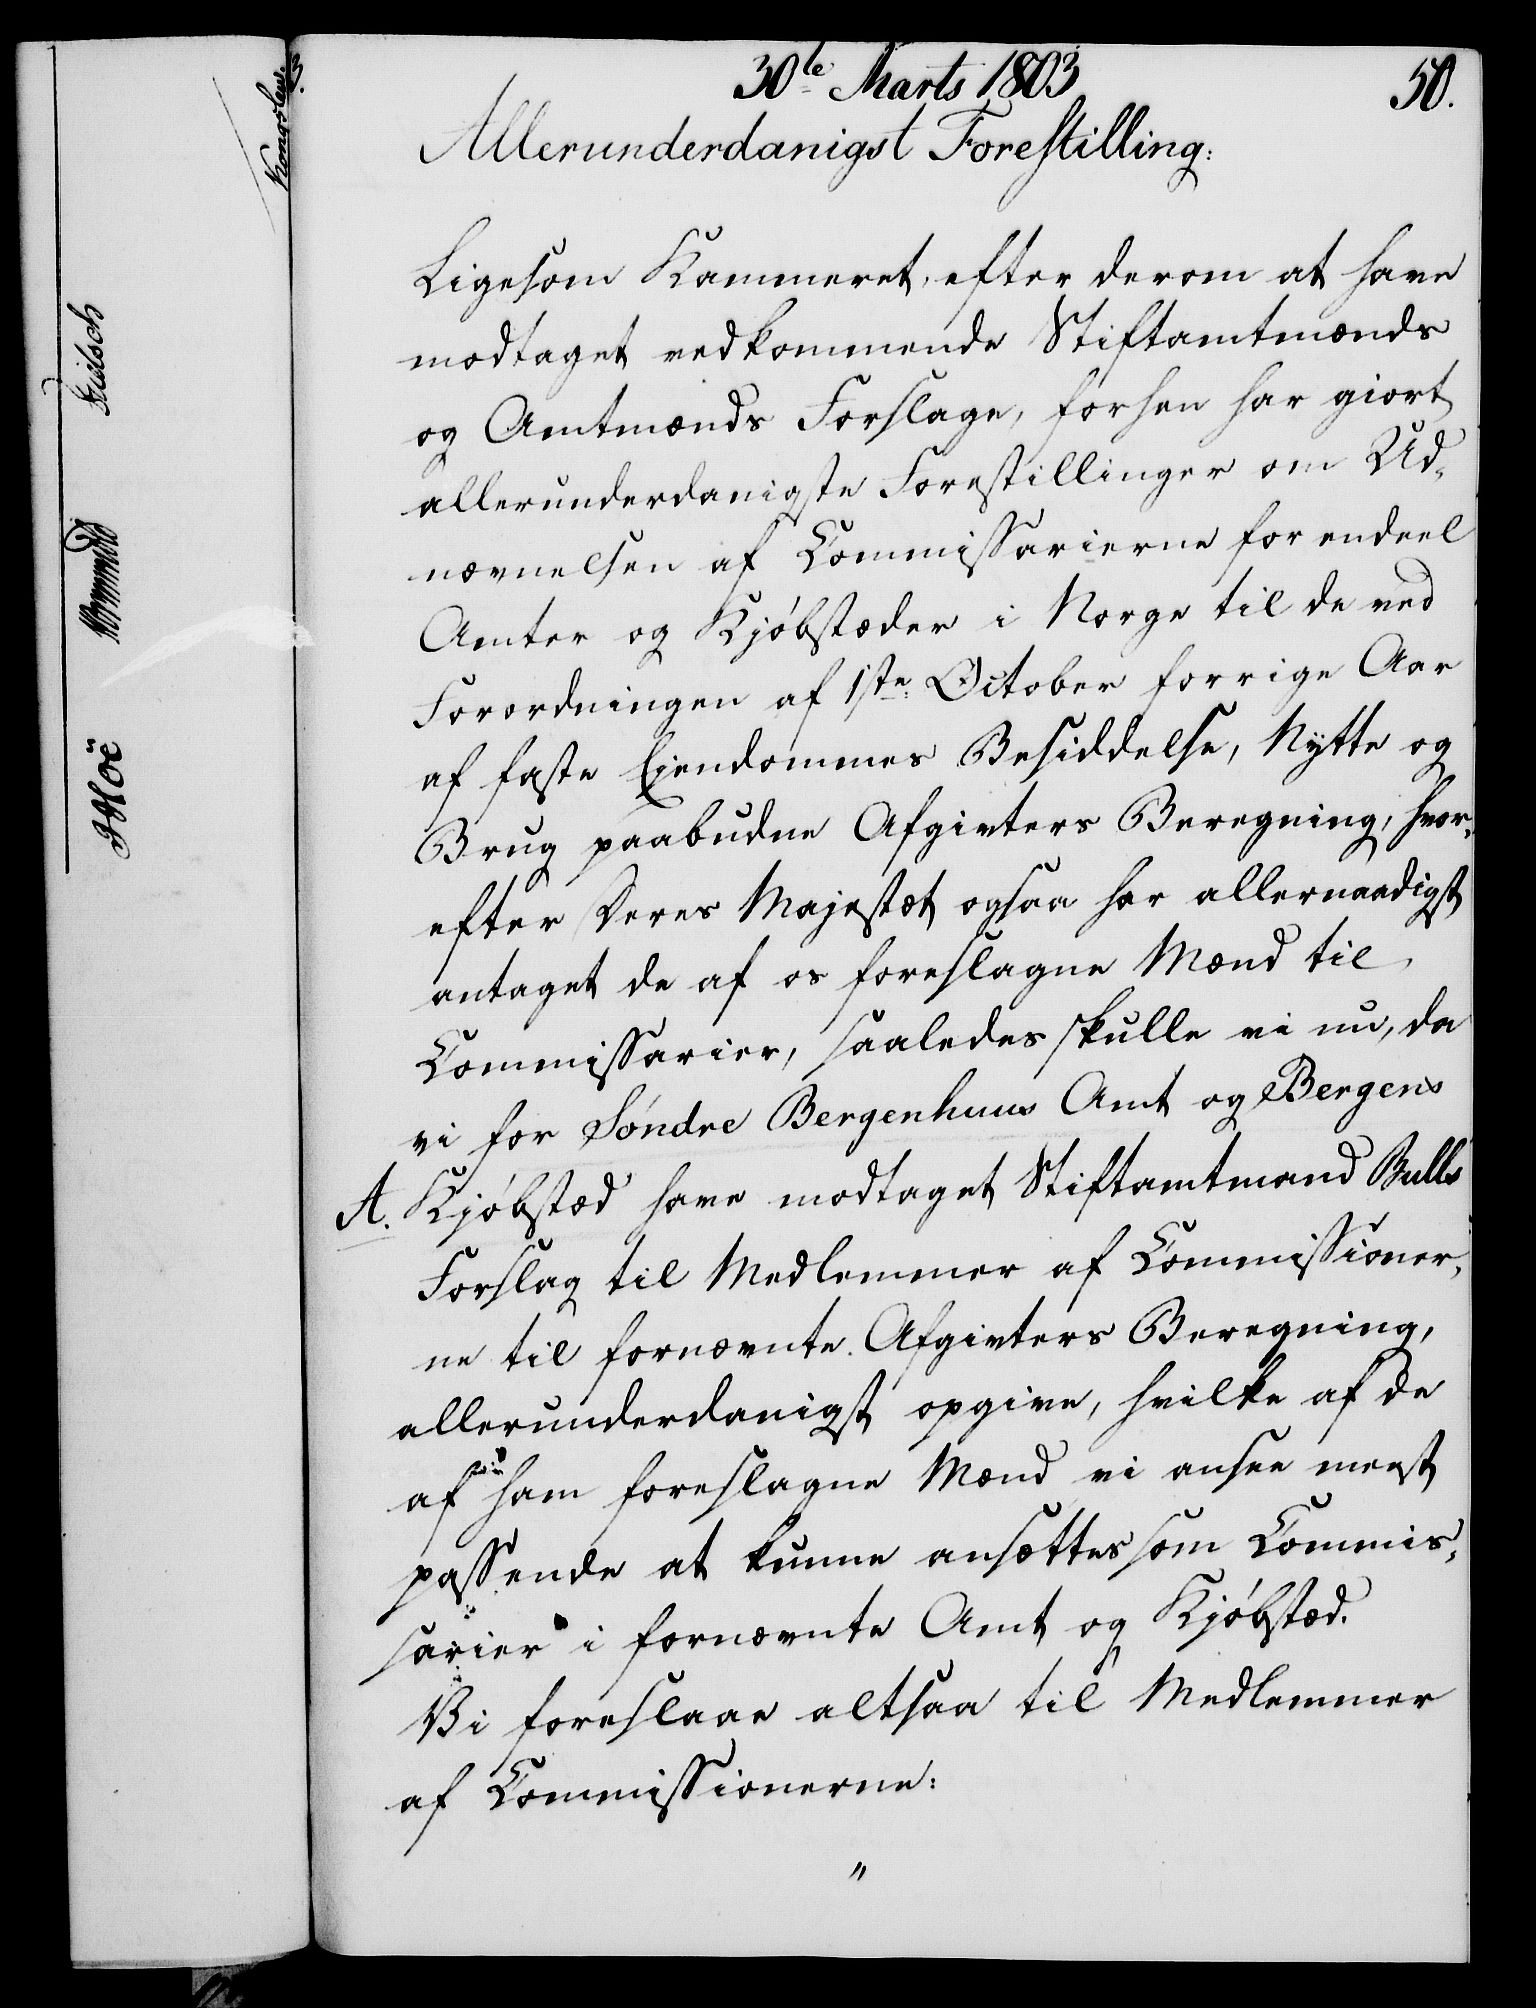 30te Marts 1803
50.
Allerunderdanigst Forestilling:
Ligesom Kammeret, efter derom at have
modtaget vedkommende Stiftamtmænds
og Amtmænds Forslage, forhen har giort
allerunderdanigste Forestillinger om Ud-
nævnelsen af Commissarierne for endeel
Amter og Kjøbstæder i Norge til de ved
Forordningen af 1ste October forrige Aar
af faste Ejendommes Besiddelse, Nytte og
Brug paabudne Afgivters Beregning, hvor-
efter Deres Majestæt ogsaa har allernaadigst
antaget de af os foreslagne Mænd til
Commissarier, saaledes skulle vi nu, da
vi for Søndre Bergenhuus Amt og Bergens
A. Kjøbstæd have modtaget Stiftamtmand Bulls
Forslag til Medlemmer af Commissioner-
ne til fornævnte Afgivters Beregning,
allerunderdanigst opgive, hvilke af de
af ham foreslagne Mænd vi ansee meest
passende at kunne ansættes som Commis-
sarier i fornævnte Amt og Kjøbstæd.
Vi foreslaae altsaa til Medlemmer
af Commissionerne:
"